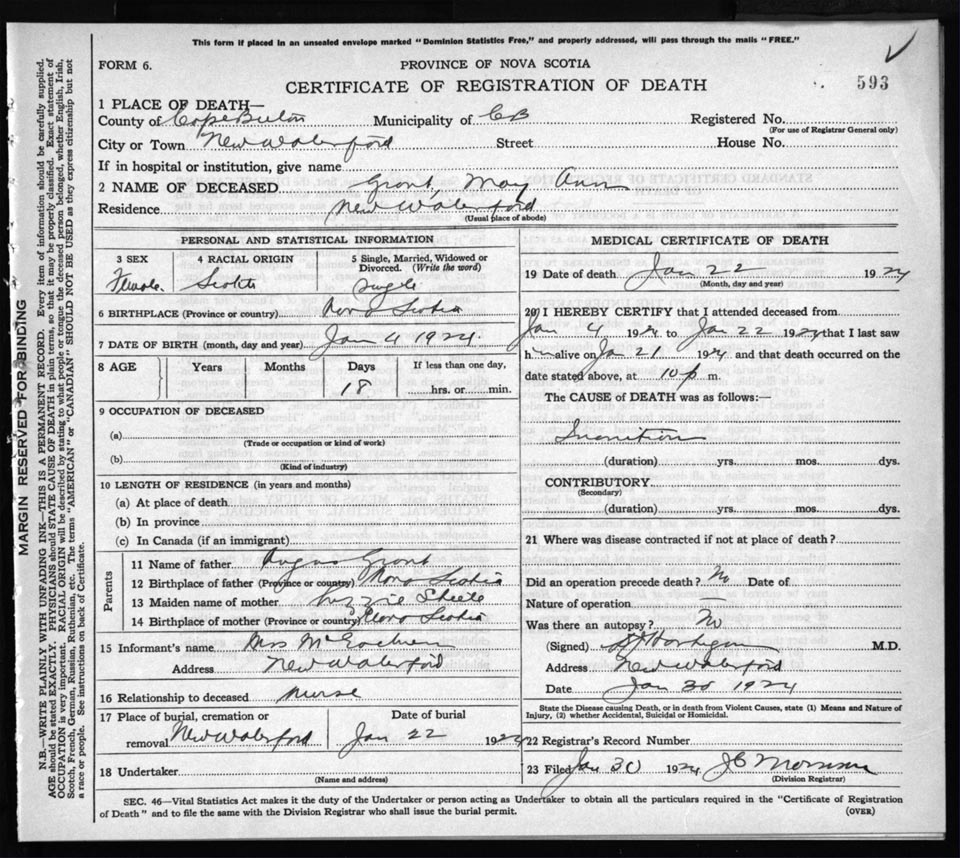 This form if placed in an unsealed envelope marked "Dominion Statistics Free," and properly addressed, will pass through the mails "FREE."
FORM 6.
PROVINCE OF NOVA SCOTIA
CERTIFICATE OF REGISTRATION OF DEATH
593
1 PLACE OF DEATH—
County of Cape Breton Municipality of CB Registered No.
(For use of Registrar General only)
City or Town New Waterford Street House No.
If in hospital or institution, give name
2 NAME OF DECEASED Grant, May Ann
Residence New Waterford
(Usual place of abode)
PERSONAL AND STATISTICAL INFORMATION
3 SEX 4 RACIAL ORIGIN 5 Single, Married, Widowed or Divorced. (Write the word)
Female Scotch Single
6 BIRTHPLACE (Province or country) Nova Scotia
7 DATE OF BIRTH (month, day and year) Jan 4 1924
8 AGE Years Months Days If less than one day,
18 hrs. or min.
9 OCCUPATION OF DECEASED
(a)
(Trade or occupation or kind of work)
(b)
(Kind of industry)
10 LENGTH OF RESIDENCE (in years and months)
(a) At place of death
(b) In province
(c) In Canada (if an immigrant)
Parents
11 Name of father Angus Grant
12 Birthplace of father (Province or country) Nova Scotia
13 Maiden name of mother Lizzie Steele
14 Birthplace of mother (Province or country) Nova Scotia
15 Informant's name Mrs McEachern
Address New Waterford
16 Relationship to deceased Nurse
17 Place of burial, cremation or removal New Waterford
Date of burial
Jan 22 1924
18 Undertaker
(Name and address)
MEDICAL CERTIFICATE OF DEATH
19 Date of death Jan 22 1924
(Month, day and year)
20 I HEREBY CERTIFY that I attended deceased from
Jan 4 1924 to Jan 22 1924 that I last saw
h alive on Jan 21 1924 and that death occurred on the
date stated above, at 10 p m.
The CAUSE of DEATH was as follows:—
Inanition
(duration) yrs. mos. dys.
CONTRIBUTORY
(Secondary)
(duration) yrs. mos. dys.
21 Where was disease contracted if not at place of death?
Did an operation precede death? No Date of
Nature of operation
Was there an autopsy? No
(Signed) M.D.
Address New Waterford
Date Jan 30 1924
State the Disease causing Death, or in death from Violent Causes, state (1) Means and Nature of
Injury, (2) whether Accidental, Suicidal or Homicidal.
22 Registrar's Record Number
23 Filed Jan 30 1924 J C Morrison
(Division Registrar)
SEC. 46—Vital Statistics Act makes it the duty of the Undertaker or person acting as Undertaker to obtain all the particulars required in the "Certificate of Registration
of Death" and to file the same with the Division Registrar who shall issue the burial permit.
(OVER)
MARGIN RESERVED FOR BINDING
N.B.—WRITE PLAINLY WITH UNFADING INK—THIS IS A PERMANENT RECORD. Every item of information should be carefully supplied.
AGE should be stated EXACTLY. PHYSICIANS should STATE CAUSE OF DEATH in plain terms, so that it may be properly classified. Exact statement of
OCCUPATION is very important. RACIAL ORIGIN will be described by stating to what people or tongue the deceased person belonged, whether English, Irish,
Scotch, French, German, Russian, Ruthenian, etc. The terms "AMERICAN" or "CANADIAN" SHOULD NOT BE USED as they express citizenship but not
a race or people. See instructions on back of Certificate.